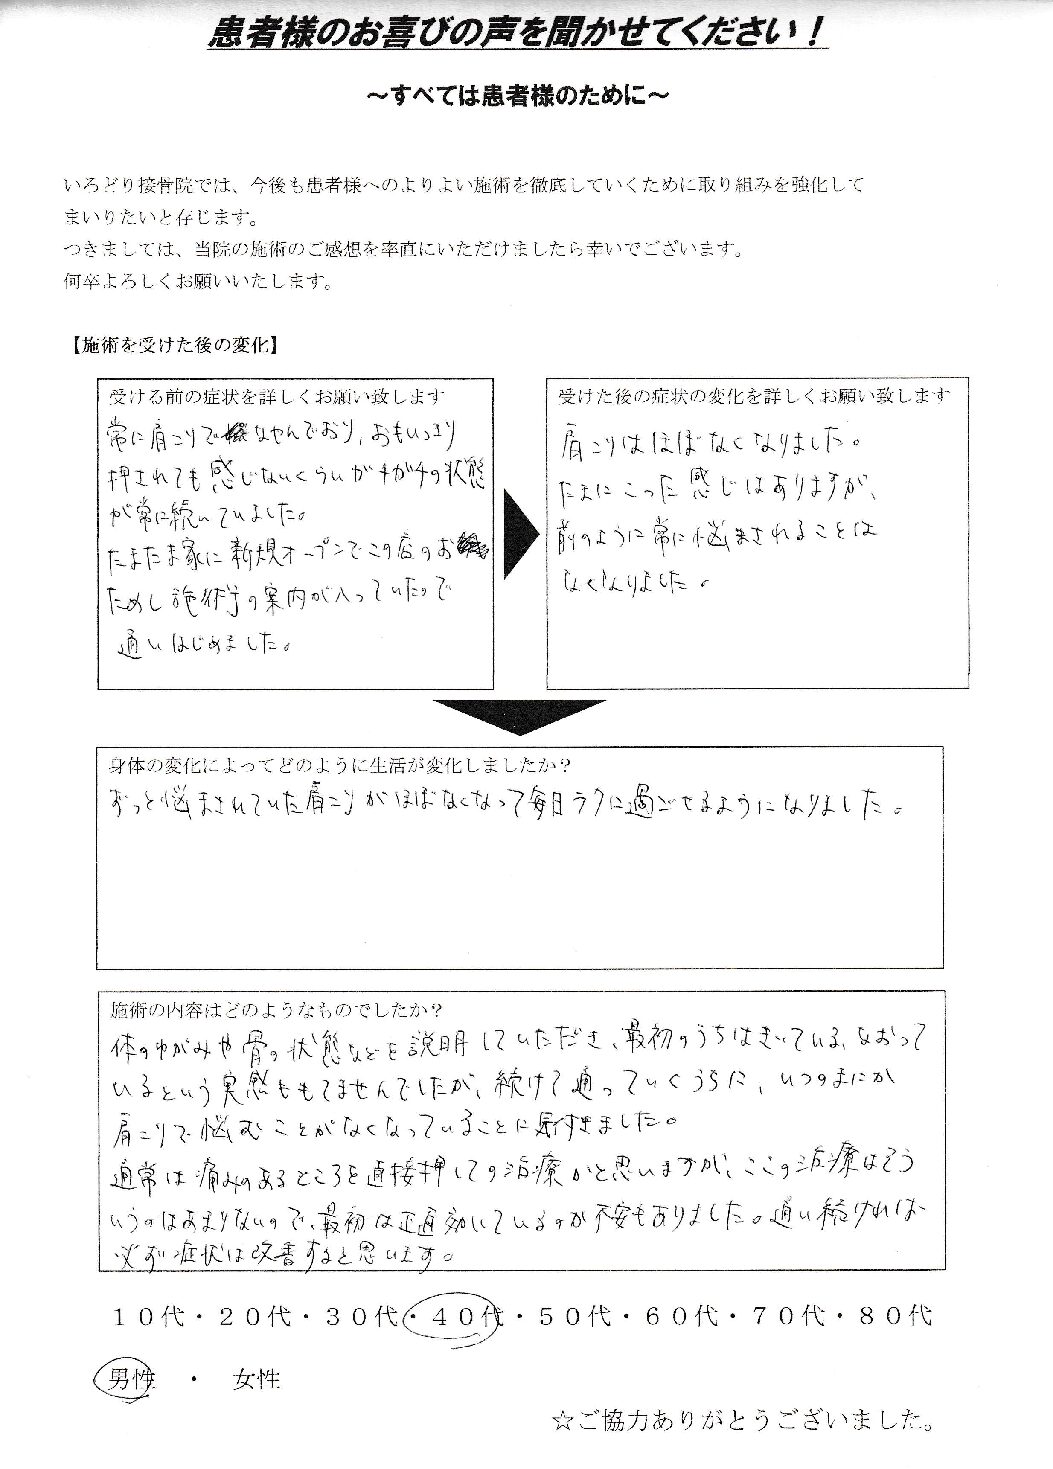 患者様のお喜びの声を聞かせてください！
～すべては患者様のために～
いろどり接骨院では、今後も患者様へのよりよい施術を徹底していくために取り組みを強化して
まいりたいと存じます。
つきましては、当院の施術のご感想を率直にいただけましたら幸いでございます。
何卒よろしくお願いいたします。
【施術を受けた後の変化】
受ける前の症状を詳しくお願い致します
常に肩こりでなやんでおり、おもいっきり
押されても感じないくらいガチガチの状態
が常に続いていました。
たまたま家に新規オープンでこの店のお
ためし施術の案内が入っていたので
通いはじめました。
受けた後の症状の変化を詳しくお願い致します
肩こりはほぼなくなりました。
たまにこった感じはありますが、
前のように常に悩まされることは
なくなりました。
身体の変化によってどのように生活が変化しましたか？
ずっと悩まされていた肩こりがほぼなくなって毎日ラクに過ごせるようになりました。
施術の内容はどのようなものでしたか？
体のゆがみや骨の状態などを説明していただき、最初のうちはきいている、なおって
いるという実感ももてませんでしたが、続けて通っていくうちに、いつのまにか
肩こりで悩むことがなくなっていることに気付きました。
通常は痛みのあるところを直接押しての治療かと思いますが、ここの治療はそう
いうのはあまりないので、最初は正直効いているのか不安もありました。通い続ければ
必ず症状は改善すると思います。
１０代・２０代・３０代・４０代・５０代・６０代・７０代・８０代
男性　・　女性
☆ご協力ありがとうございました。